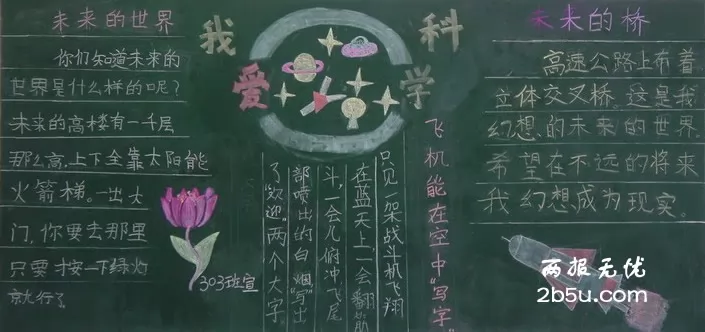 未来的世界
你们知道未来的
世界是什么样的呢？
未来的高楼有一千层
那么高，上下全靠太阳能
火箭梯。一出大
门，你要去那里
只要按一下绿灯
就行了
我爱科学
303班宣
飞机能在空中“写字”
只见一架战斗机飞翔
在蓝天上，一会翻筋
斗，一会儿俯冲飞尾
部喷出的白烟“写”出
了“欢迎”两个大字。
未来的桥
高速公路上布着
立体交叉桥。这是我
幻想的未来的世界。
希望在不远的将来
我幻想成为现实。
两报无忧
2b5u.com